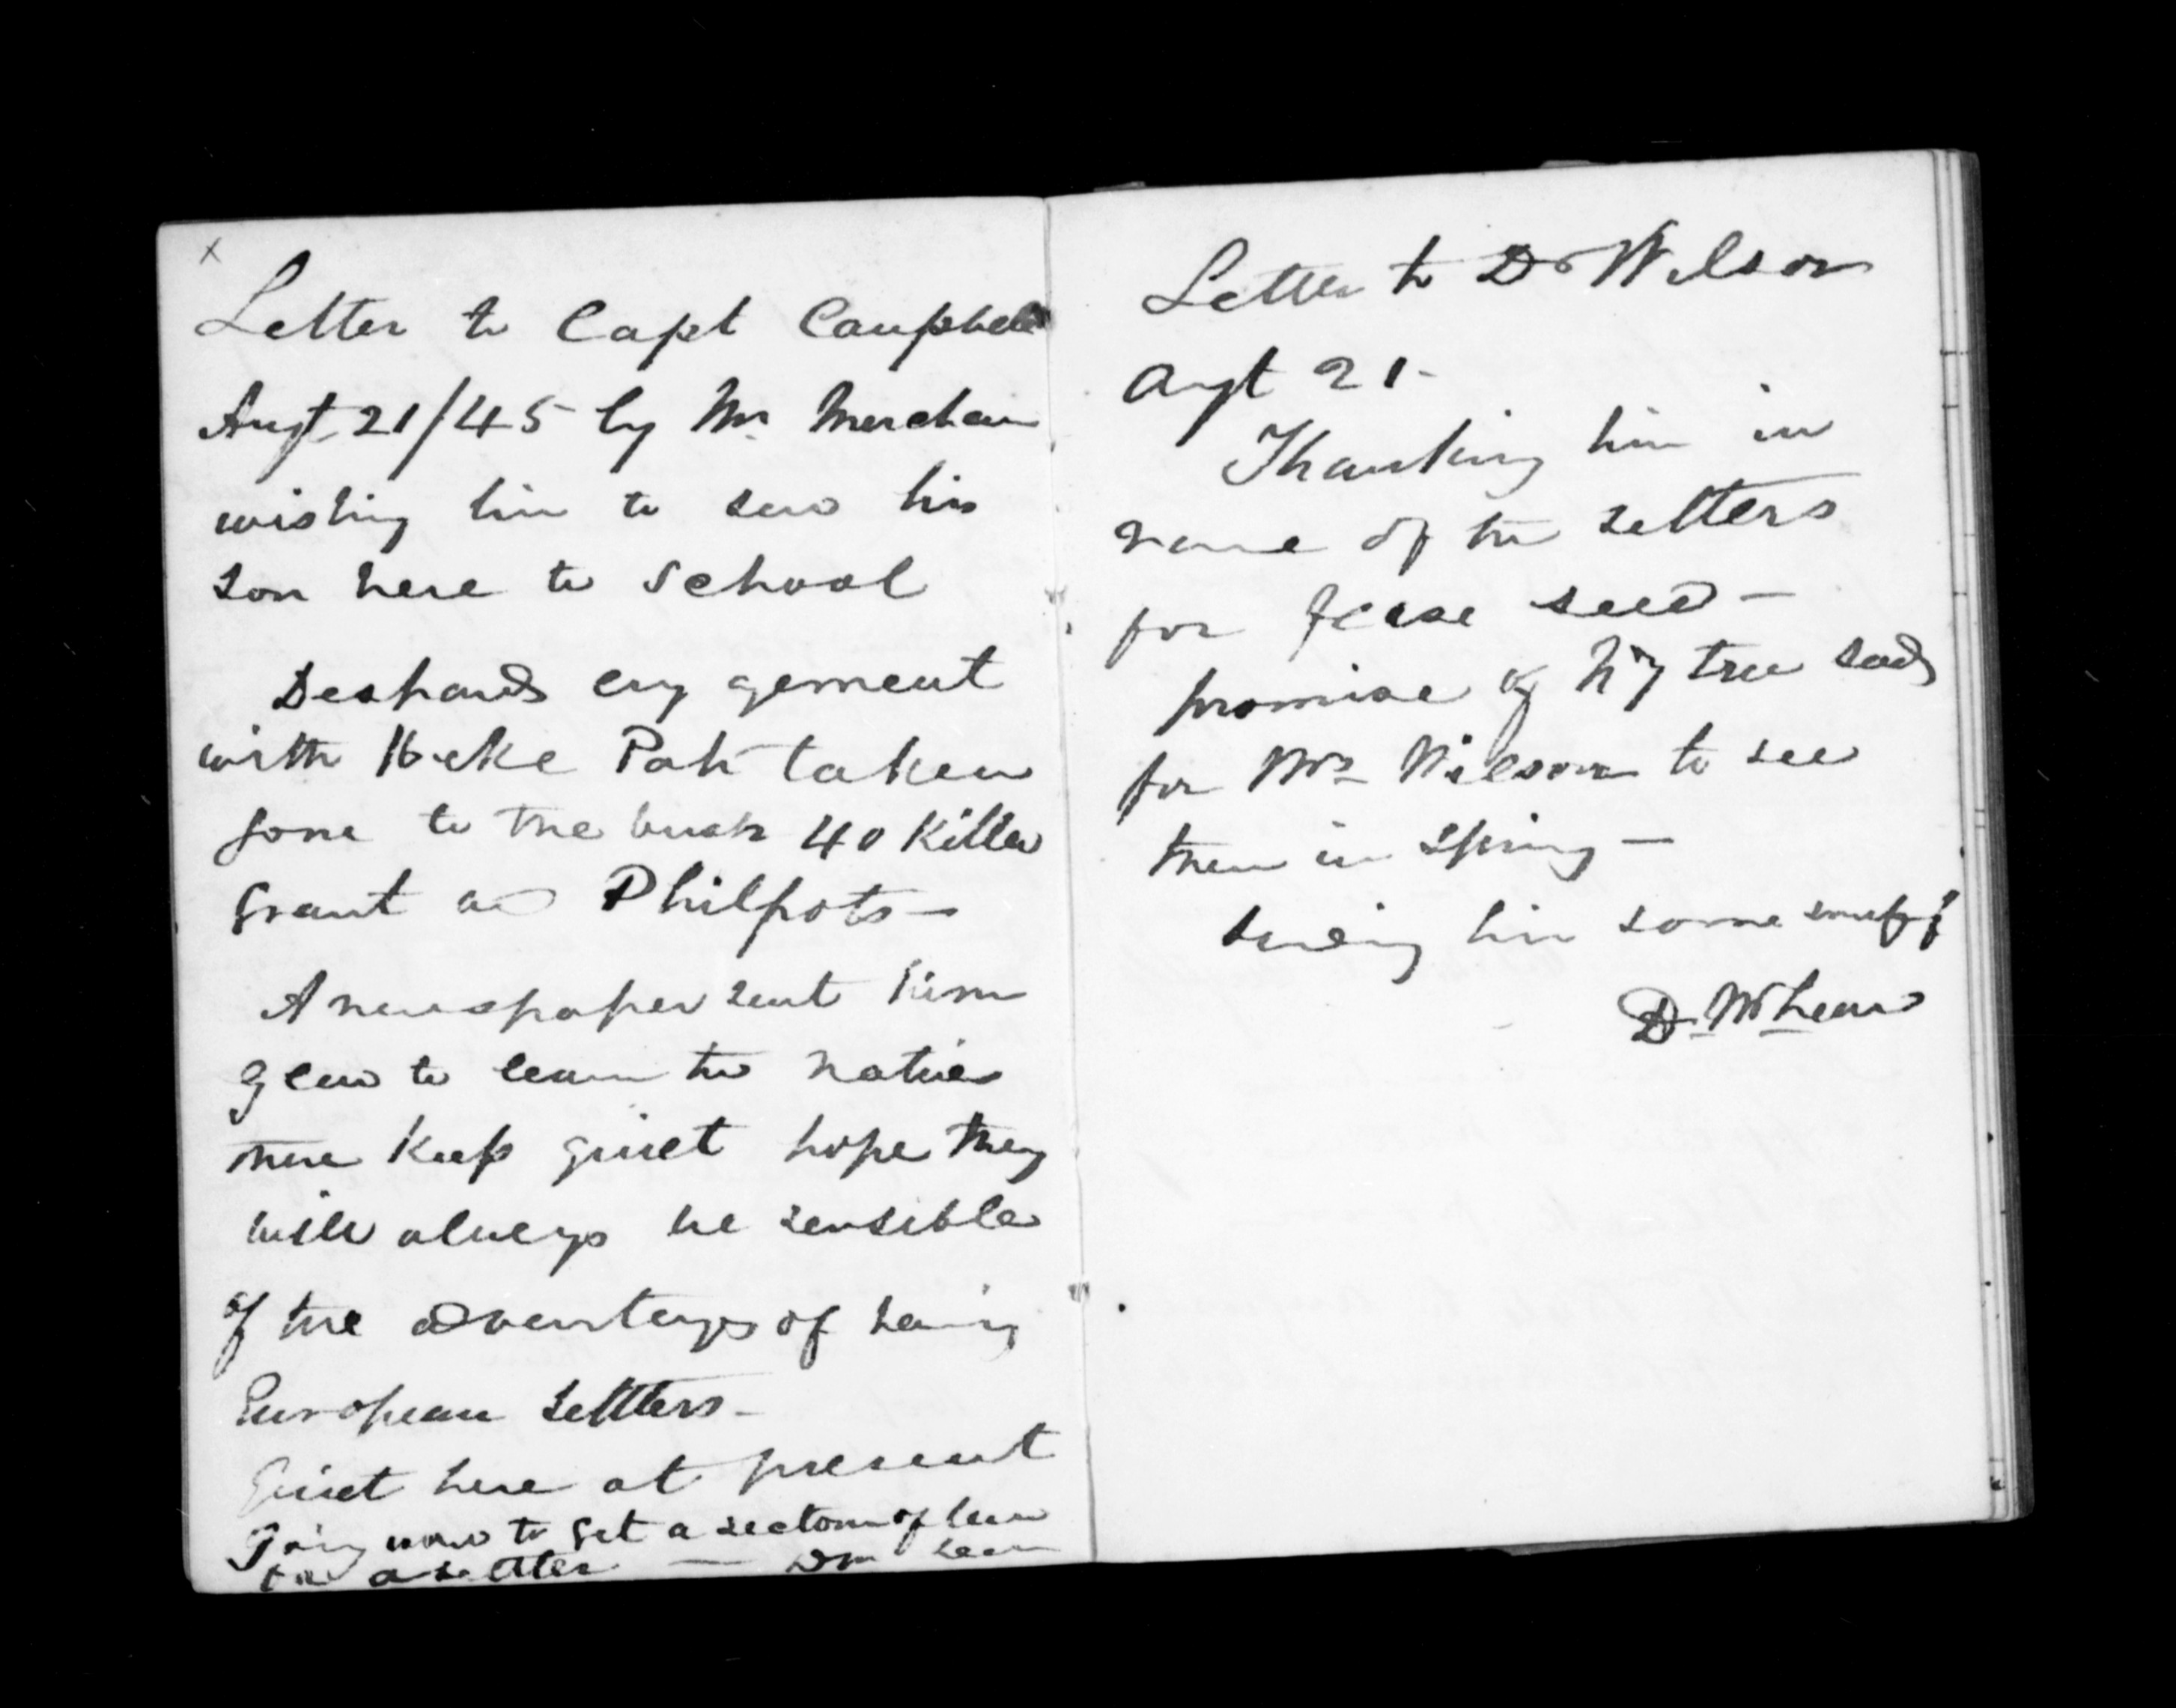 x
Letter to Capt Campbell
Augt 21/45 by Mr Merchan
wishing him to send his
son here to school
Despards engagement
with Heke Pah taken
gone to the bush 40 Killed
Grant and Philpots —
A newspaper sent him
Glad to learn the natives
there keep quiet hope they
will always be sensible
of the advantages of having
European settlers —
Quiet here at present
Going now to get a section of land
for a settler — D M Lean
Letter to Dr Wilson
Augt 21 -
Thanking him in
name of the settlers
for seed —
promise of tree seeds
for Mrs Wilson to see
them in spring —
sending him some snuff
D. McLean